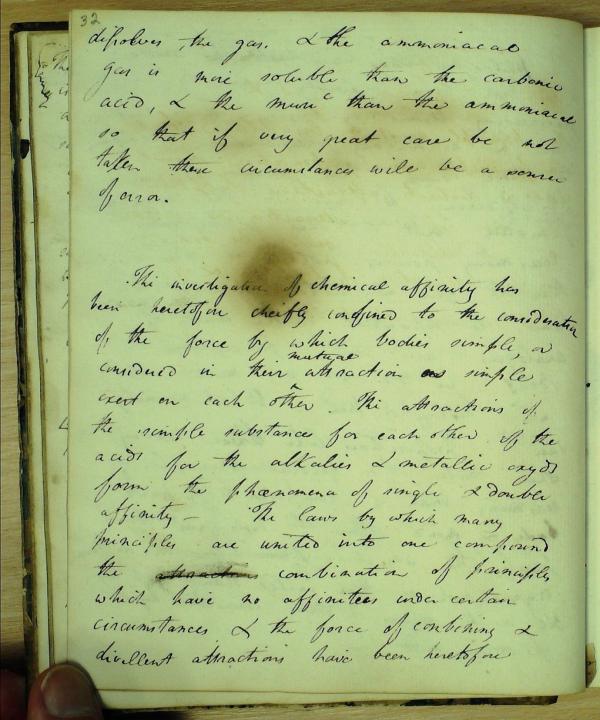 32
dissolves the gas. & the ammoniacal
gas is more soluble than the carbonic
acid, & the muric than the ammoniacal
so that if very great care be not
taken these circumstances will be a source
of error.
The investigation of chemical affinity has
been heretofore cheifly confined to the consideration
of the force by which bodies simple, or
mutual
considered in their attraction as simple
exert on each other. The attractions of
the simple substances for each other of the
acids for the alkalies & metallic oxyds
form the phænomena of single & double
affinity – The laws by which many
principles are united into one compound
the attractions combination of principles
which have no affinitees under certain
circumstances & the force of combining &
divellent attractions have been heretofore